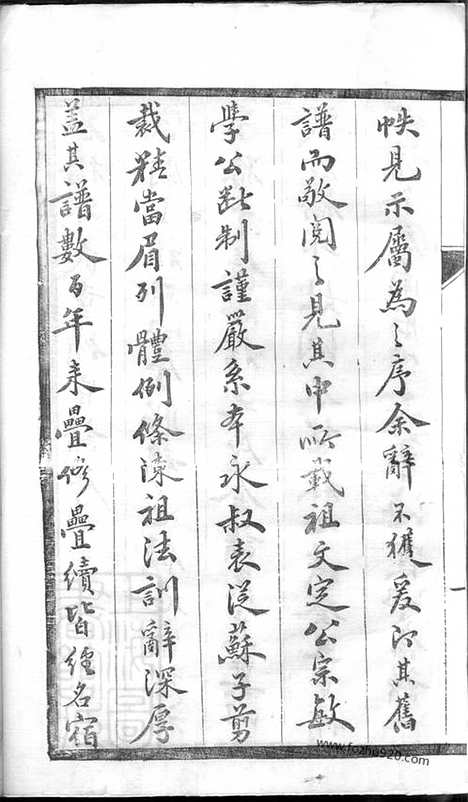 帙見示屬為之序余辭不獲爰即其舊
譜而敬閱之見其中所載祖文定公宗敏
學公斷制謹嚴系本永叔表從蘇子剪
裁精當眉列體例條陳祖法訓辭深厚
蓋其譜數百年來疊修疊續皆經名宿
www.fozhu920.com